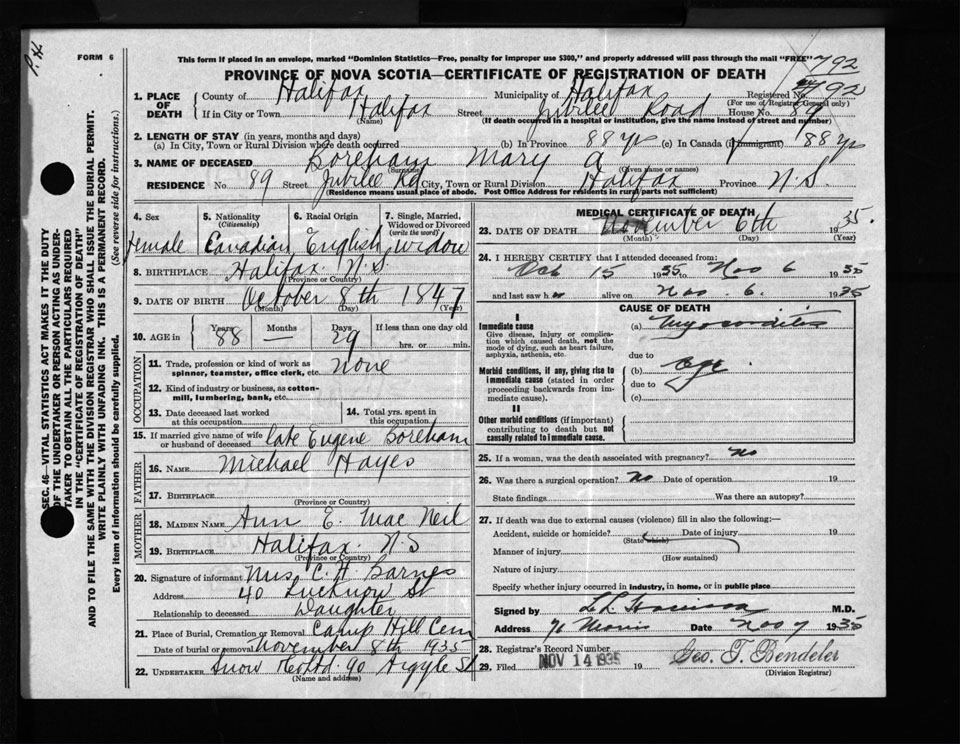 P.H.
FORM 6
This form if placed in an envelope, marked "Dominion Statistics—Free, penalty for improper use $300," and properly addressed will pass through the mail "FREE"
792
PROVINCE OF NOVA SCOTIA—CERTIFICATE OF REGISTRATION OF DEATH
1. PLACE OF DEATH
County of Halifax Municipality of Halifax Registered No. 792
(For use of Registrar General only)
If in City or Town Halifax Street Jubilee Road House No. 89
(Name) (If death occurred in a hospital or institution, give the name instead of street and number)
2. LENGTH OF STAY (in years, months and days)
(a) In City, Town or Rural Division where death occurred (b) In Province 88 yrs (c) In Canada (if immigrant) 88 yrs
3. NAME OF DECEASED Boreham Mary A
(Surname) (Given name or names)
RESIDENCE No 89 Street Jubilee Rd City, Town or Rural Division Halifax Province N.S.
(Residence means usual place of abode. Post Office Address for residents in rural parts not sufficient)
4. Sex 5. Nationality (Citizenship) 6. Racial Origin 7. Single, Married, Widowed or Divorced (write the word)
female Canadian English widow
8. BIRTHPLACE Halifax. N.S.
(Province or Country)
9. DATE OF BIRTH October 8th 1847
(Month) (Day) (Year)
10. AGE in Years Months Days If less than one day old
88 — 29 hrs. or min.
OCCUPATION
11. Trade, profession or kind of work as spinner, teamster, office clerk, etc. none
12. Kind of industry or business, as cotton-mill, lumbering, bank, etc.
13. Date deceased last worked at this occupation 14. Total yrs. spent in this occupation
15. If married give name of wife or husband of deceased late Eugene Boreham
FATHER
16. NAME Michael Hayes
17. BIRTHPLACE
(Province or Country)
MOTHER
18. MAIDEN NAME Ann E. Mac Neil
19. BIRTHPLACE Halifax. N.S
(Province or Country)
20. Signature of informant Mrs. C. H Barnes
Address 40 Lucknow St
Relationship to deceased Daughter
21. Place of Burial, Cremation or Removal Camp Hill Cem
Date of burial or removal November 8th 1935
22. UNDERTAKER Snow & Co Ltd. 90 Argyle St
(Name and address)
MEDICAL CERTIFICATE OF DEATH
23. DATE OF DEATH November 6th 1935.
(Month) (Day) (Year)
24. I HEREBY CERTIFY that I attended deceased from:
Oct 15 1935 to Nov 6 1935
and last saw her alive on Nov. 6. 1935
CAUSE OF DEATH
I
Immediate cause
Give disease, injury or complication which caused death, not the mode of dying, such as heart failure, asphyxia, asthenia, etc.
(a) Myocarditis
due to
Morbid conditions, if any, giving rise to immediate cause (stated in order proceeding backwards from immediate cause).
(b) Age
due to
(c)
II
Other morbid conditions (if important) contributing to death but not causally related to immediate cause.
25. If a woman, was the death associated with pregnancy? No
26. Was there a surgical operation? No Date of operation 19
State findings Was there an autopsy?
27. If death was due to external causes (violence) fill in also the following:—
Accident, suicide or homicide? Date of injury 19
(State which)
Manner of injury
(How sustained)
Nature of injury
Specify whether injury occurred in industry, in home, or in public place
Signed by M.D.
Address 76 Morris Date Nov 7 1935
28. Registrar's Record Number
29. Filed NOV 14 1935 19 Geo. T. Bendeler
(Division Registrar)
SEC. 46—VITAL STATISTICS ACT MAKES IT THE DUTY
OF THE UNDERTAKER OR PERSON ACTING AS UNDER-
TAKER TO OBTAIN ALL THE PARTICULARS REQUIRED
IN THE "CERTIFICATE OF REGISTRATION OF DEATH"
AND TO FILE THE SAME WITH THE DIVISION REGISTRAR WHO SHALL ISSUE THE BURIAL PERMIT.
WRITE PLAINLY WITH UNFADING INK. THIS IS A PERMANENT RECORD.
Every item of information should be carefully supplied. (See reverse side for instructions.)